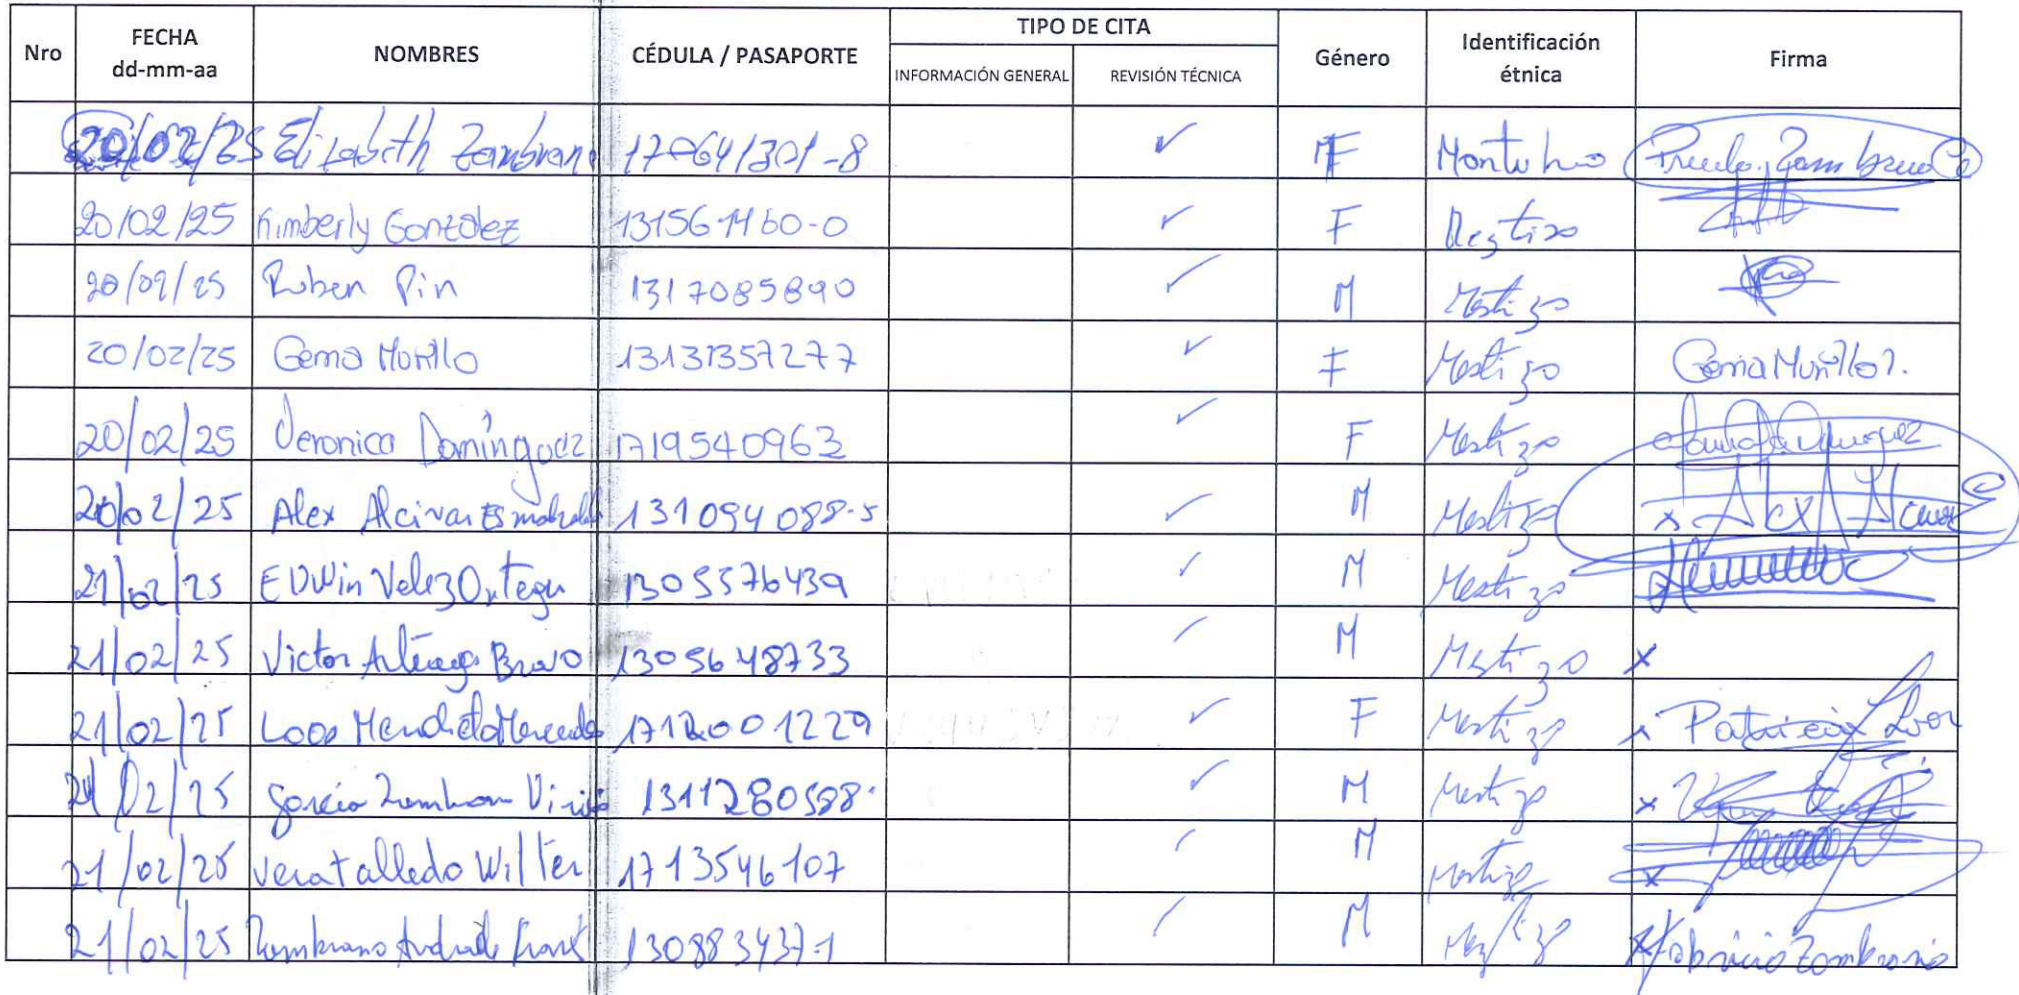 Nro FECHA dd-mm-aa NOMBRES CÉDULA / PASAPORTE TIPO DE CITA INFORMACIÓN GENERAL REVISIÓN TÉCNICA Género Identificación étnica Firma
20/02/25 Elizabeth Zambrano 170641301-8 ✓ F Montubio
20/02/25 Kimberly Gonzalez 131561460-0 ✓ F Mestizo
20/02/25 Ruben Pin 1317085890 ✓ M Mestizo
20/02/25 Gema Murillo 13131357277 ✓ F Mestizo Gema Murillo
20/02/25 Veronica Domínguez 1719540963 ✓ F Mestizo
20/02/25 Alex Alcivar 131094088-5 ✓ M Mestizo x Alex Alcivar
21/02/25 EDWin Velez Ortega 1305576439 ✓ M Mestizo
21/02/25 Victor Arteaga Bravo 1305648733 ✓ M Mestizo x
21/02/25 Loor Mendieta Mercedes 1712001229 ✓ F Mestizo x Patricia Loor
21/02/25 Garcia Zambrano 1311280588 ✓ M Mestizo x
21/02/25 Vera Talledo Wilter 1713546107 ✓ M Mestizo x
21/02/25 Zambrano Andrade Frank 130883437-1 ✓ M Mestizo x Fabricio Zambrano